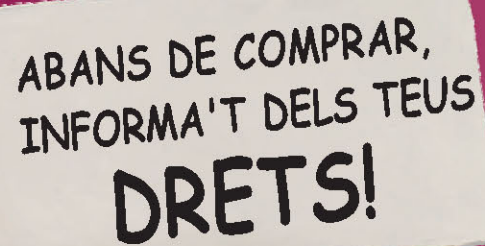 ABANS DE COMPRAR,
INFORMA'T DELS TEUS
DRETS!